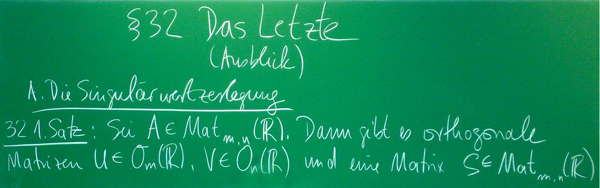 §32 Das Letzte
(Ausblick)
A. Die Singulärwertzerlegung
32.1. Satz: Sei A ∈ Mat_{m,n}(ℝ). Dann gibt es orthogonale
Matrizen U ∈ O_m(ℝ), V ∈ O_n(ℝ) und eine Matrix S ∈ Mat_{m,n}(ℝ)